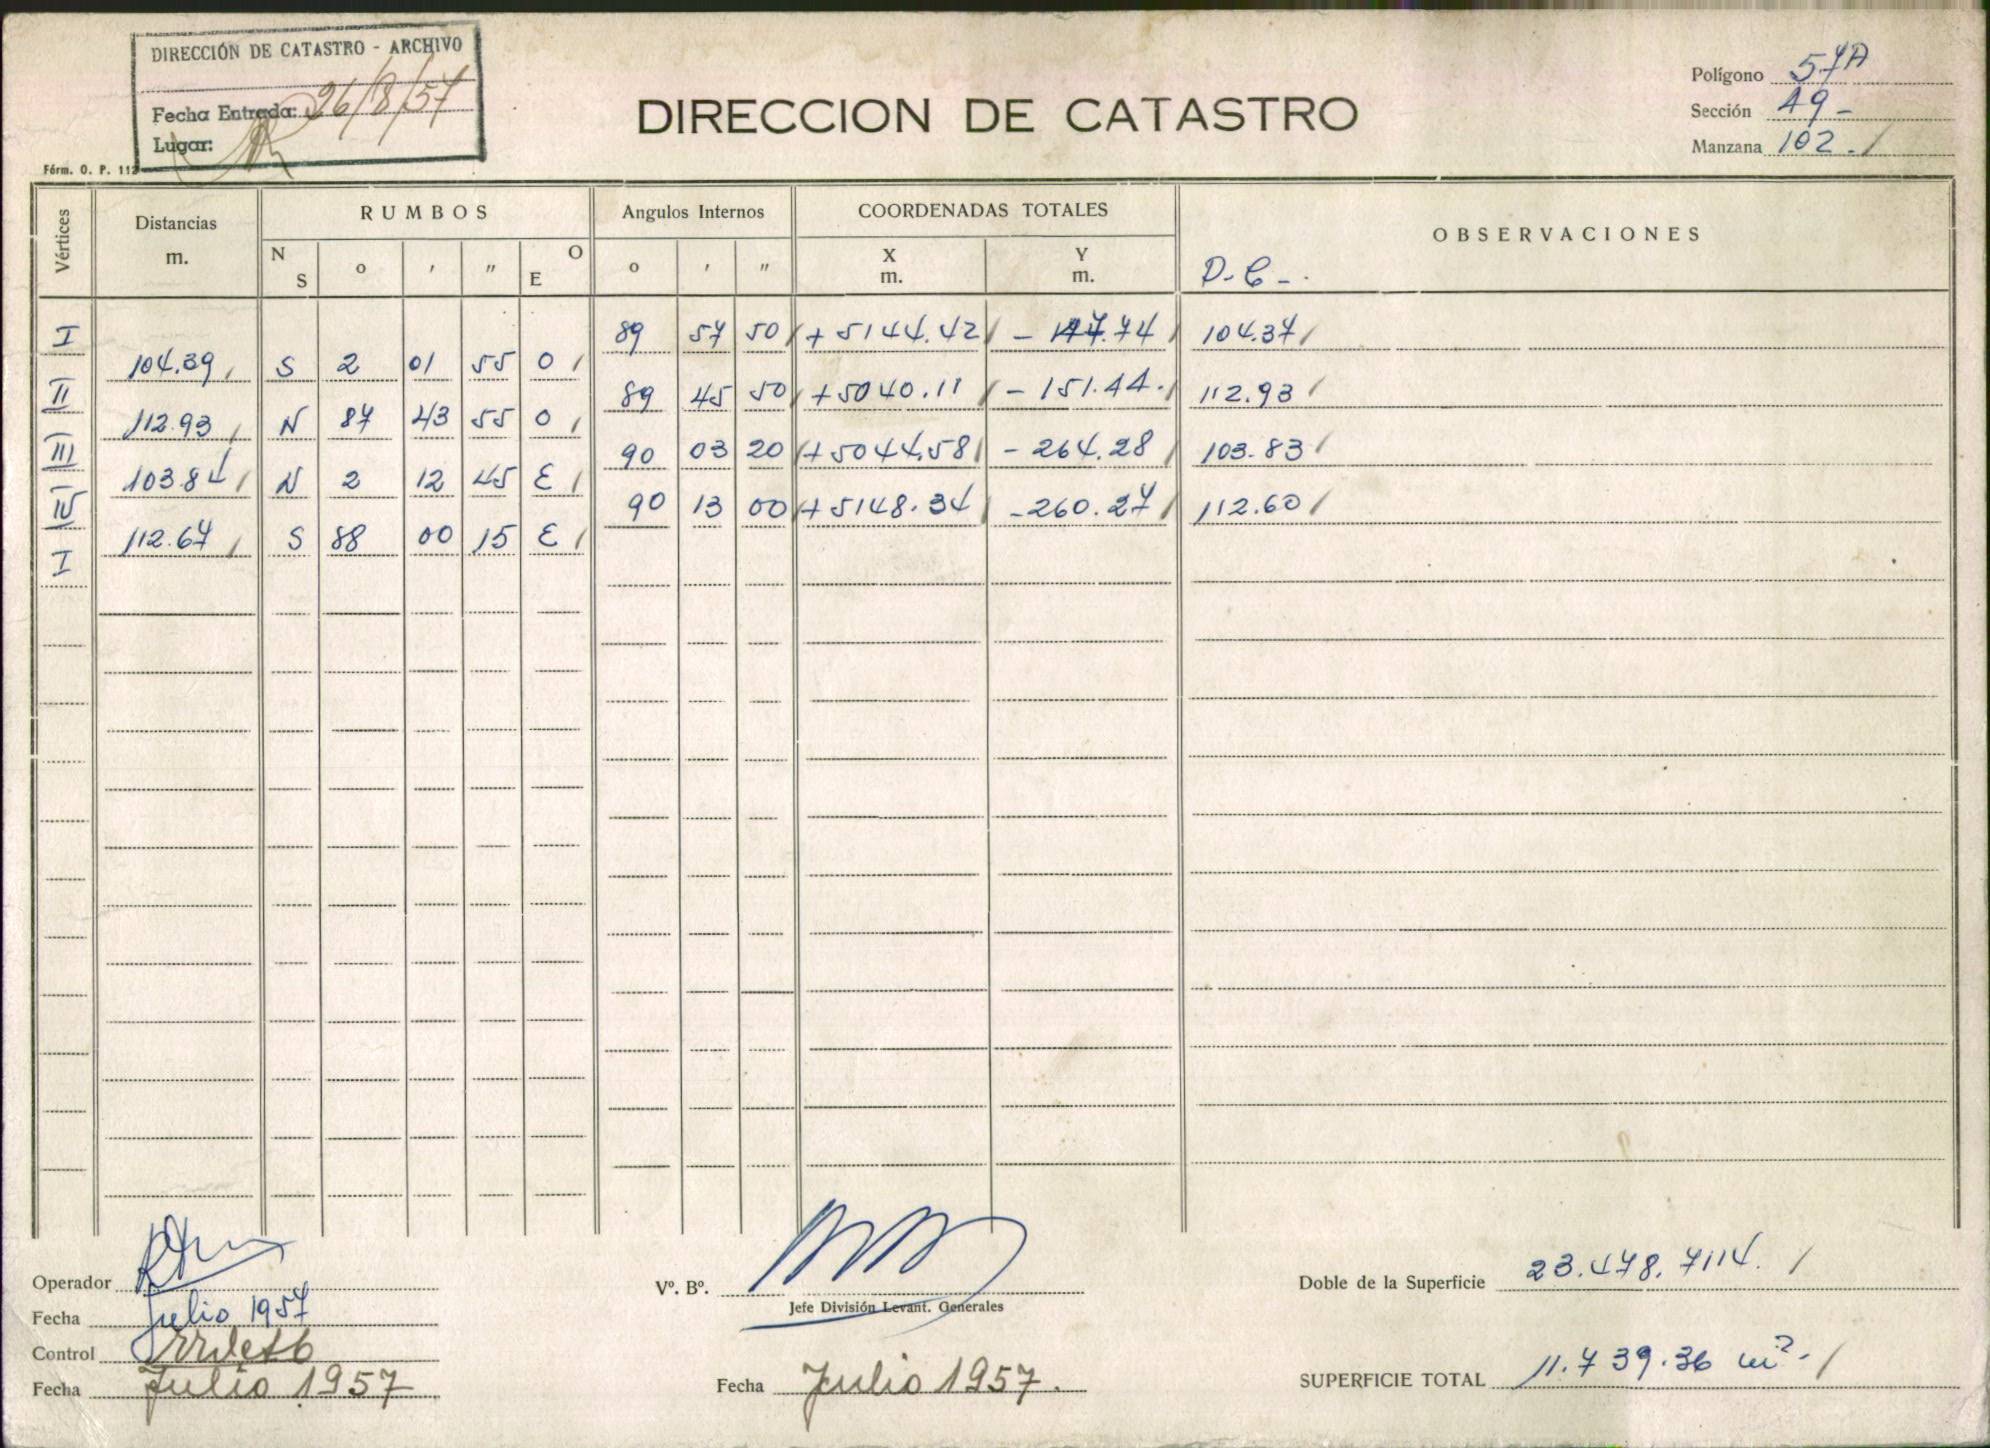 DIRECCIÓN DE CATASTRO - ARCHIVO
Fecha Entrada: 26/8/57
Lugar:
Fórm. O. P. 112
DIRECCION DE CATASTRO
Polígono 57A
Sección 49-
Manzana 102./
Vértices Distancias m. RUMBOS Angulos Internos COORDENADAS TOTALES OBSERVACIONES
N S o ' " O E o ' " X m. Y m. D.C-.
I 89 57 50/ +5144.42/ - 147.74/ 104.37/
104.39/ S 2 01 55 O/
II 89 45 50/ +5040.11/ - 151.44./ 112.93/
112.93/ N 87 43 55 O/
III 90 03 20/ +5044.58/ - 264.28/ 103.83/
103.84/ N 2 12 45 E/
IV 90 13 00/ +5148.34/ -260.27/ 112.60/
112.67/ S 88 00 15 E/
I
Operador
Fecha Julio 1957
Control
Fecha Julio 1957
Vº. Bº.
Jefe División Levant. Generales
Fecha Julio 1957.
Doble de la Superficie 23.478.7114./
SUPERFICIE TOTAL 11.739.36 m2./